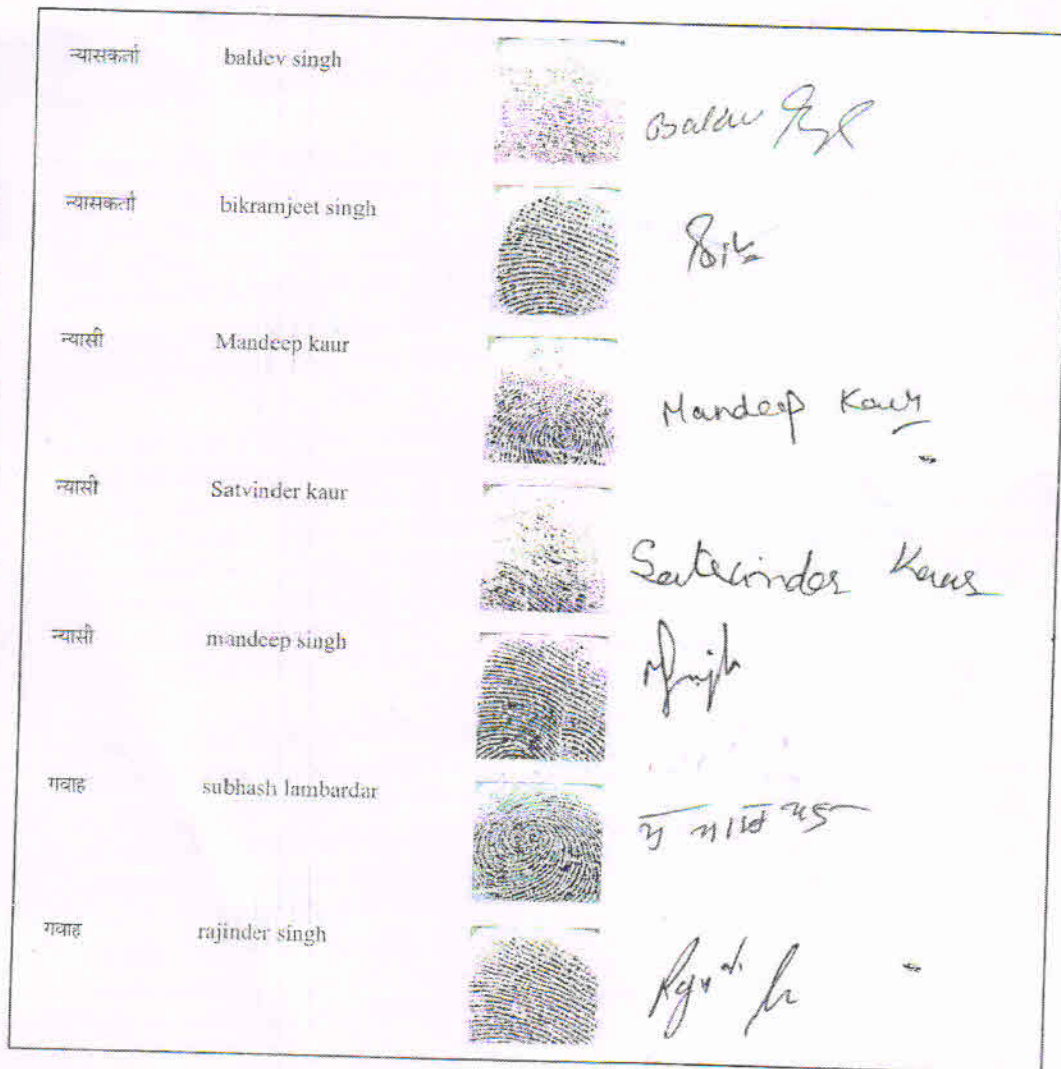 न्यासकर्ता baldev singh
Baldev Singh
न्यासकर्ता bikramjeet singh
न्यासी Mandeep kaur
Mandeep Kaur
न्यासी Satvinder kaur
Satvinder Kaur
न्यासी mandeep singh
गवाह subhash lambardar
गवाह rajinder singh